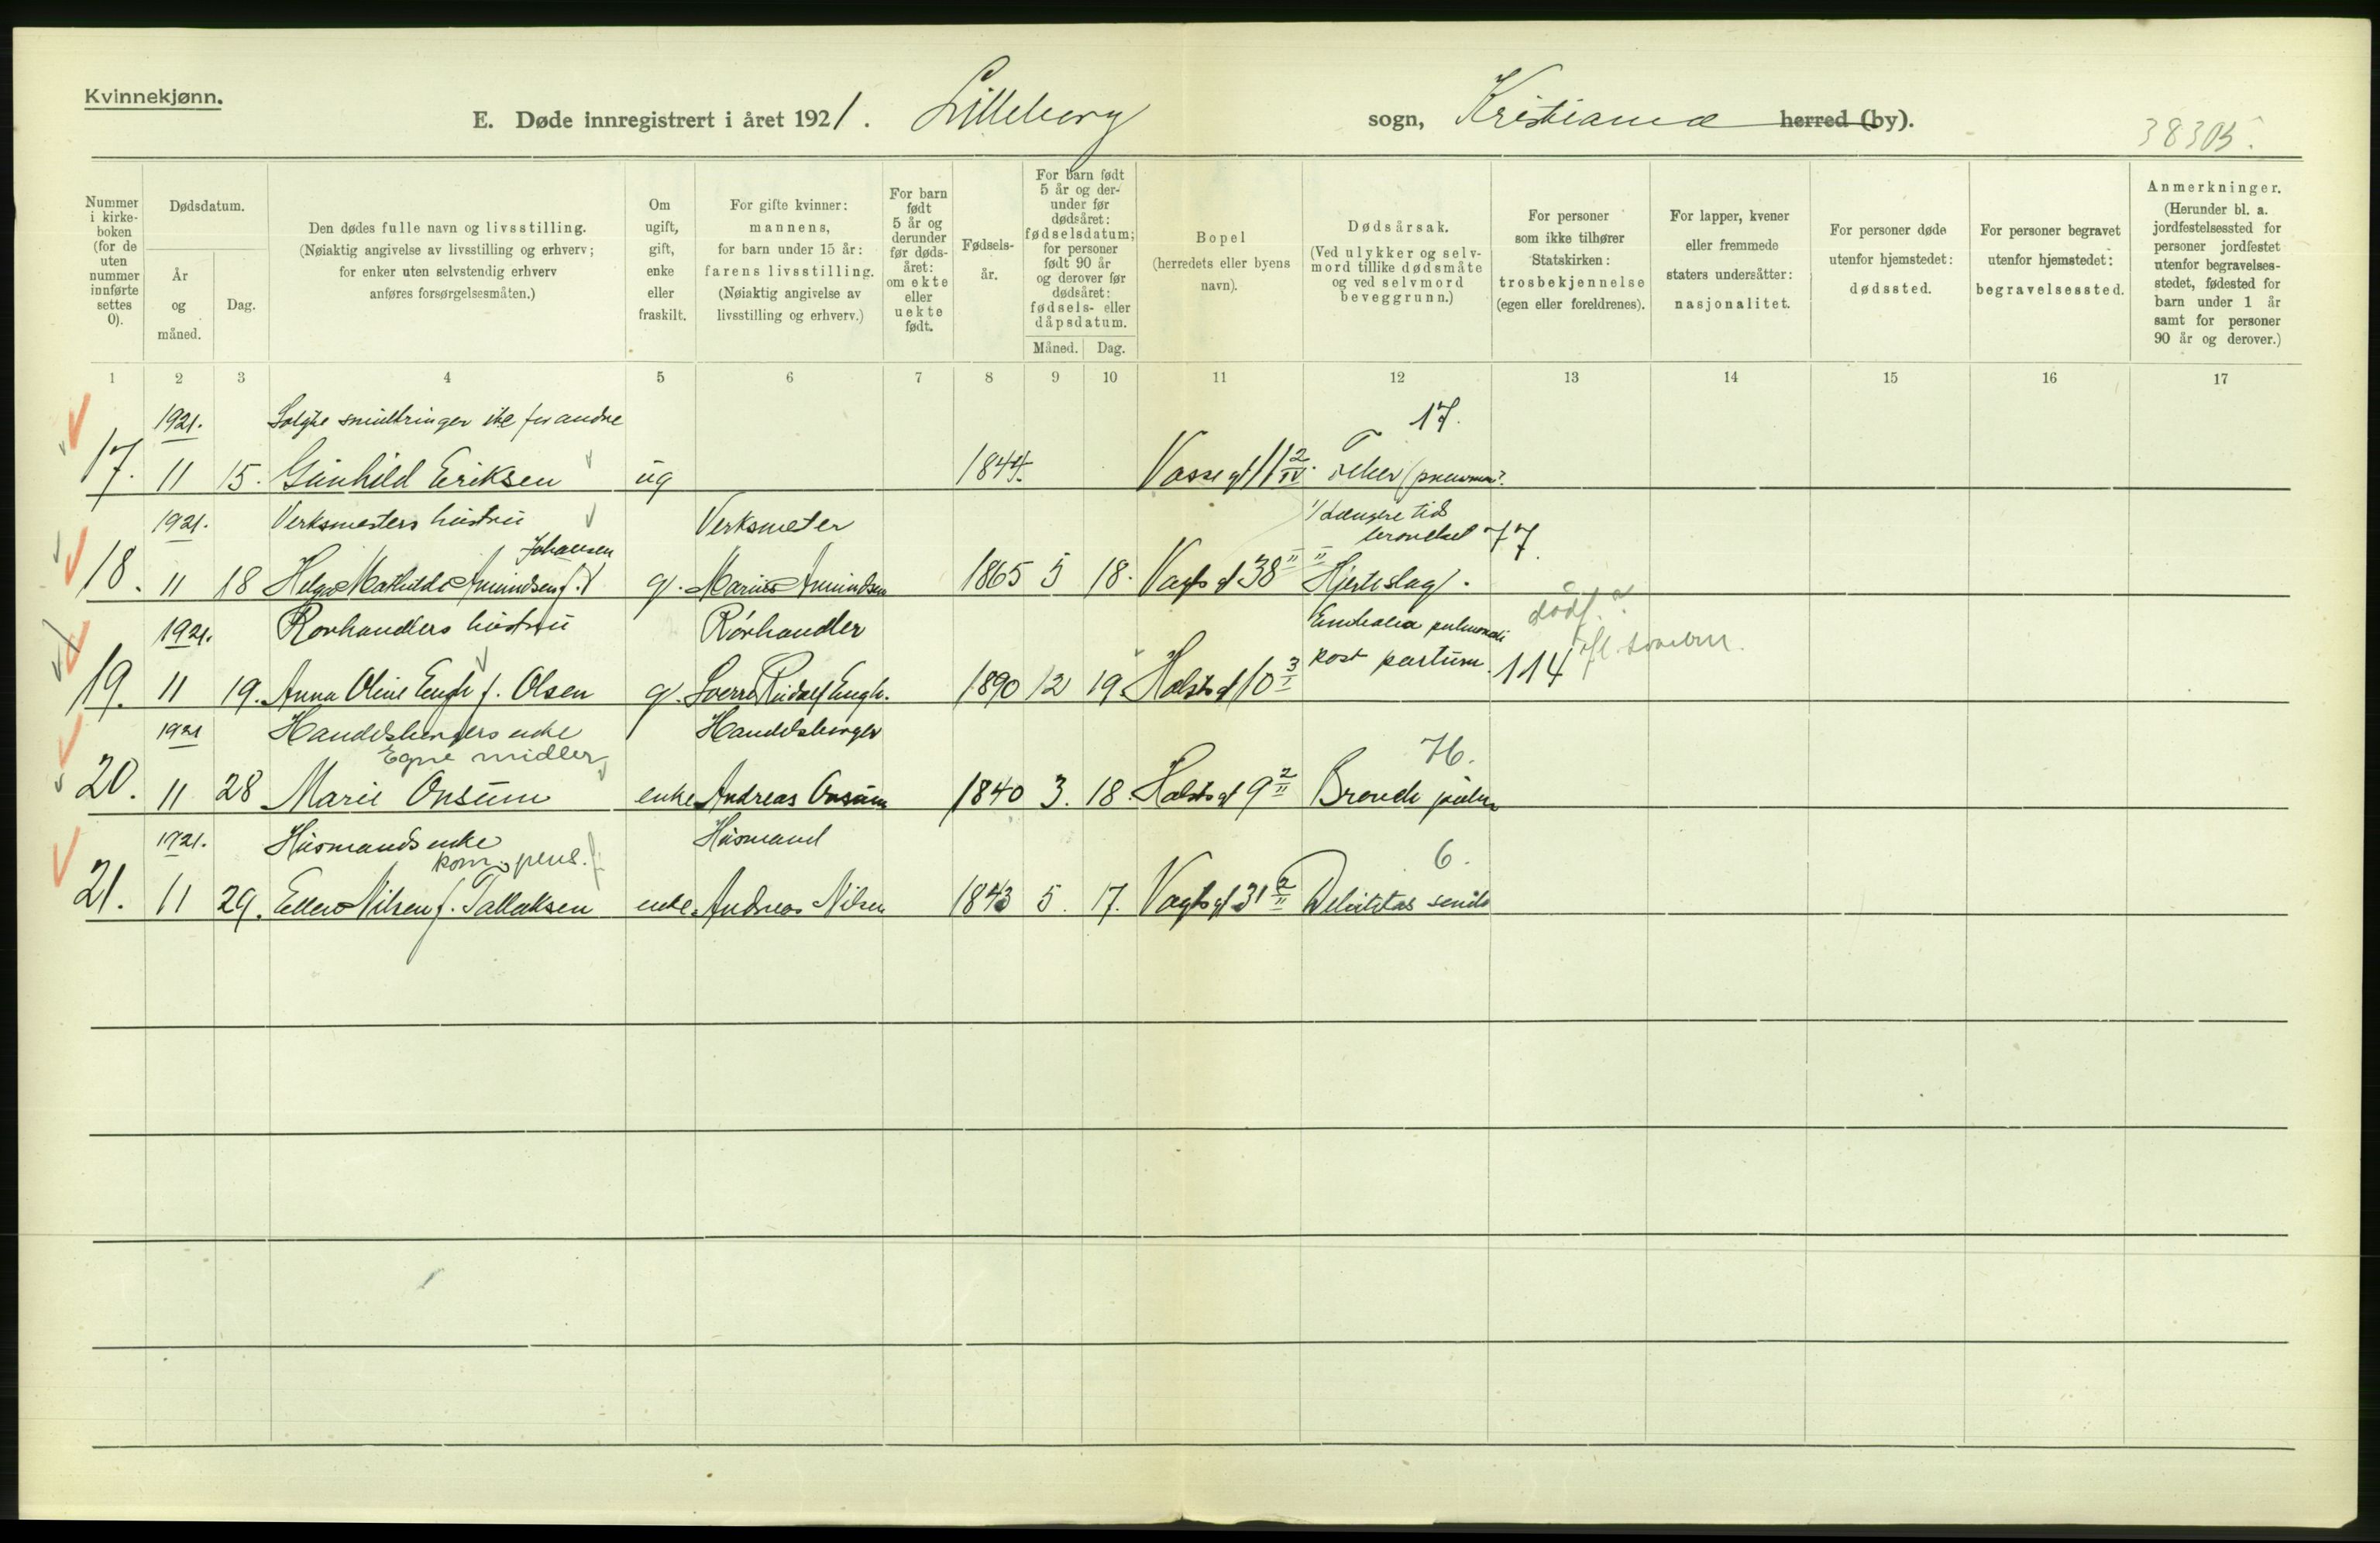 Kvinnekjønn.
E. Døde innregistrert i året 1921. Lilleborg sogn, Kristiania herred (by).
38305.
Nummer i kirke-boken (for de uten nummer innførte settes 0).
Dødsdatum.
År og måned.
Dag.
Den dødes fulle navn og livsstilling.
(Nøiaktig angivelse av livsstilling og erhverv;
for enker uten selvstendig erhverv
anføres forsørgelsesmåten.)
Om ugift, gift, enke eller fraskilt.
For gifte kvinner:
mannens,
for barn under 15 år:
farens livsstilling.
(Nøiaktig angivelse av
livsstilling og erhverv.)
For barn født 5 år og derunder før døds-året: om ekte eller uekte født.
Fødsels-år.
For barn født 5 år og der-under før dødsåret: fødselsdatum; for personer født 90 år og derover før dødsåret: fødsels- eller dåpsdatum.
Måned.
Dag.
Bopel
(herredets eller byens
navn).
Dødsårsak.
(Ved ulykker og selv-
mord tillike dødsmåte
og ved selvmord
beveggrunn.)
For personer
som ikke tilhører
Statskirken:
trosbekjennelse
(egen eller foreldrenes).
For lapper, kvener
eller fremmede
staters undersåtter:
nasjonalitet.
For personer døde
utenfor hjemstedet:
dødssted.
For personer begravet
utenfor hjemstedet:
begravelsessted.
Anmerkninger.
(Herunder bl. a.
jordfestelsessted for
personer jordfestet
utenfor begravelses-
stedet, fødested for
barn under 1 år
samt for personer
90 år og derover.)
1 2 3 4 5 6 7 8 9 10 11 12 13 14 15 16 17
1921. Solgte smultringer for andre 17.
17. 11 15. Gunhild Eriksen ug 1844. 11 2/IV
1921. Verksmesters hustru Verksmester længere tid
Johansen 77.
18. 11 18 Helga Mathilde Amundsen f. g. Marius Amundsen 1865 5 18. Vogts gt 38 II Hjerteslag.
1921. Rørhandlers hustru Rørhandler Embolia pulmonali
19. 11 19. Anna Oline Engh f. Olsen g. Sverre Rudolf Engh. 1890 12 19. Holsts gt 10 3/I post partum. 114
1921 Handelsborgers enke Handelsborger
Egne midler 76.
20. 11 28 Marie Onsum enke Andreas Onsum 1840 3. 18. Holsts gt 9 2/II Bronch pulm
1921. Husmands enke Husmand
kom. pens. 6.
21. 11 29. Ellen Nilsen f. Tallaksen enke Andreas Nilsen 1843 5. 17. Vogts gt 31 2/II Debilitas senilis